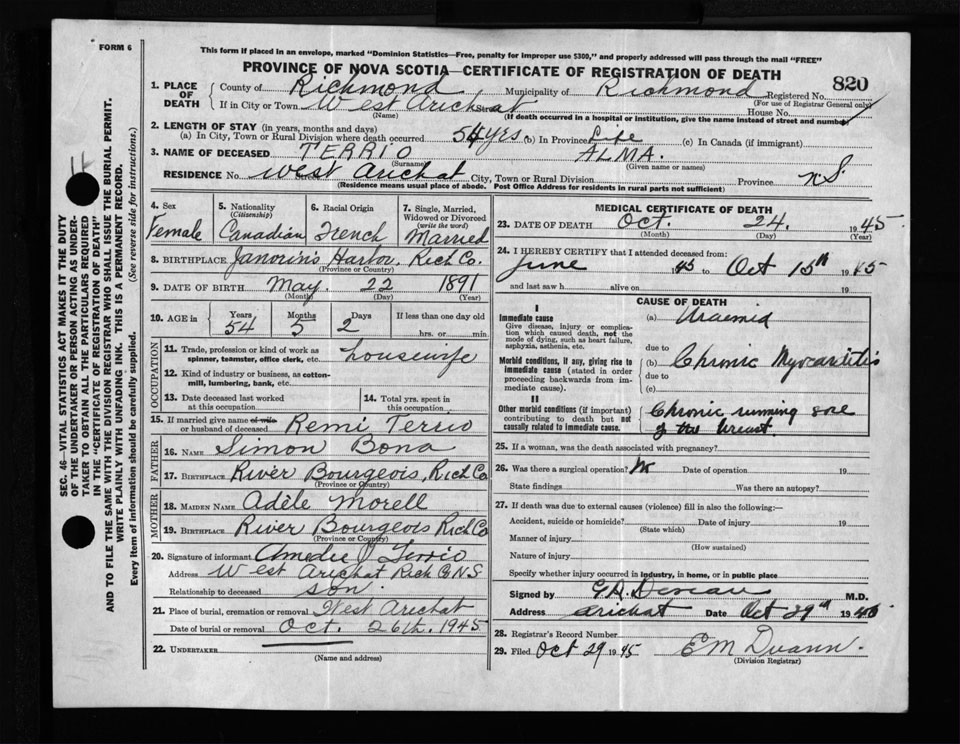 FORM 6
This form if placed in an envelope, marked "Dominion Statistics—Free, penalty for improper use $300," and properly addressed will pass through the mail "FREE"
PROVINCE OF NOVA SCOTIA—CERTIFICATE OF REGISTRATION OF DEATH
820
1. PLACE OF DEATH
County of Richmond Municipality of Richmond Registered No.
(For use of Registrar General only)
If in City or Town West Arichat Street House No.
(Name) (If death occurred in a hospital or institution, give the name instead of street and number)
2. LENGTH OF STAY (in years, months and days)
(a) In City, Town or Rural Division where death occurred 54 yrs (b) In Province Life (c) In Canada (if immigrant)
3. NAME OF DECEASED TERRIO ALMA.
(Surname) (Given name or names)
RESIDENCE No. West Arichat Street City, Town or Rural Division Province N.S.
(Residence means usual place of abode. Post Office Address for residents in rural parts not sufficient)
4. Sex Female
5. Nationality (Citizenship) Canadian
6. Racial Origin French
7. Single, Married, Widowed or Divorced (write the word) Married
8. BIRTHPLACE Janvrin's Harbor, Rich Co.
(Province or Country)
9. DATE OF BIRTH May 22 1891
(Month) (Day) (Year)
10. AGE in Years 54 Months 5 Days 2 If less than one day old
hrs. or min.
OCCUPATION
11. Trade, profession or kind of work as spinner, teamster, office clerk, etc. housewife
12. Kind of industry or business, as cotton-mill, lumbering, bank, etc.
13. Date deceased last worked at this occupation
14. Total yrs. spent in this occupation
15. If married give name of wife or husband of deceased Remi Terrio
FATHER
16. NAME Simon Bona
17. BIRTHPLACE River Bourgeois, Rich Co
(Province or Country)
MOTHER
18. MAIDEN NAME Adèle Morell
19. BIRTHPLACE River Bourgeois Rich Co
(Province or Country)
20. Signature of informant Amedee P Terrio
Address West Arichat Rich Co N S
Relationship to deceased son
21. Place of burial, cremation or removal West Arichat
Date of burial or removal Oct. 26th. 1945
22. UNDERTAKER
(Name and address)
MEDICAL CERTIFICATE OF DEATH
23. DATE OF DEATH Oct 24. 1945
(Month) (Day) (Year)
24. I HEREBY CERTIFY that I attended deceased from:
June 1945 to Oct 15th 1945
and last saw h alive on 19
CAUSE OF DEATH
I
Immediate cause
Give disease, injury or complication which caused death, not the mode of dying, such as heart failure, asphyxia, asthenia, etc.
(a) Uraemia
due to
Morbid conditions, if any, giving rise to immediate cause (stated in order proceeding backwards from immediate cause).
(b) Chronic Myocarditis
due to
(c)
II
Other morbid conditions (if important) contributing to death but not causally related to immediate cause.
Chronic running sore
of the breast
25. If a woman, was the death associated with pregnancy?
26. Was there a surgical operation? No Date of operation 19
State findings Was there an autopsy?
27. If death was due to external causes (violence) fill in also the following:—
Accident, suicide or homicide? Date of injury 19
(State which)
Manner of injury
(How sustained)
Nature of injury
Specify whether injury occurred in industry, in home, or in public place
Signed by M.D.
Address Arichat Date Oct 29th 1945
28. Registrar's Record Number
29. Filed Oct 29 1945
(Division Registrar)
SEC. 46—VITAL STATISTICS ACT MAKES IT THE DUTY
OF THE UNDERTAKER OR PERSON ACTING AS UNDER-
TAKER TO OBTAIN ALL THE PARTICULARS REQUIRED
IN THE "CERTIFICATE OF REGISTRATION OF DEATH"
AND TO FILE THE SAME WITH THE DIVISION REGISTRAR WHO SHALL ISSUE THE BURIAL PERMIT.
WRITE PLAINLY WITH UNFADING INK. THIS IS A PERMANENT RECORD.
Every item of information should be carefully supplied. (See reverse side for instructions.)